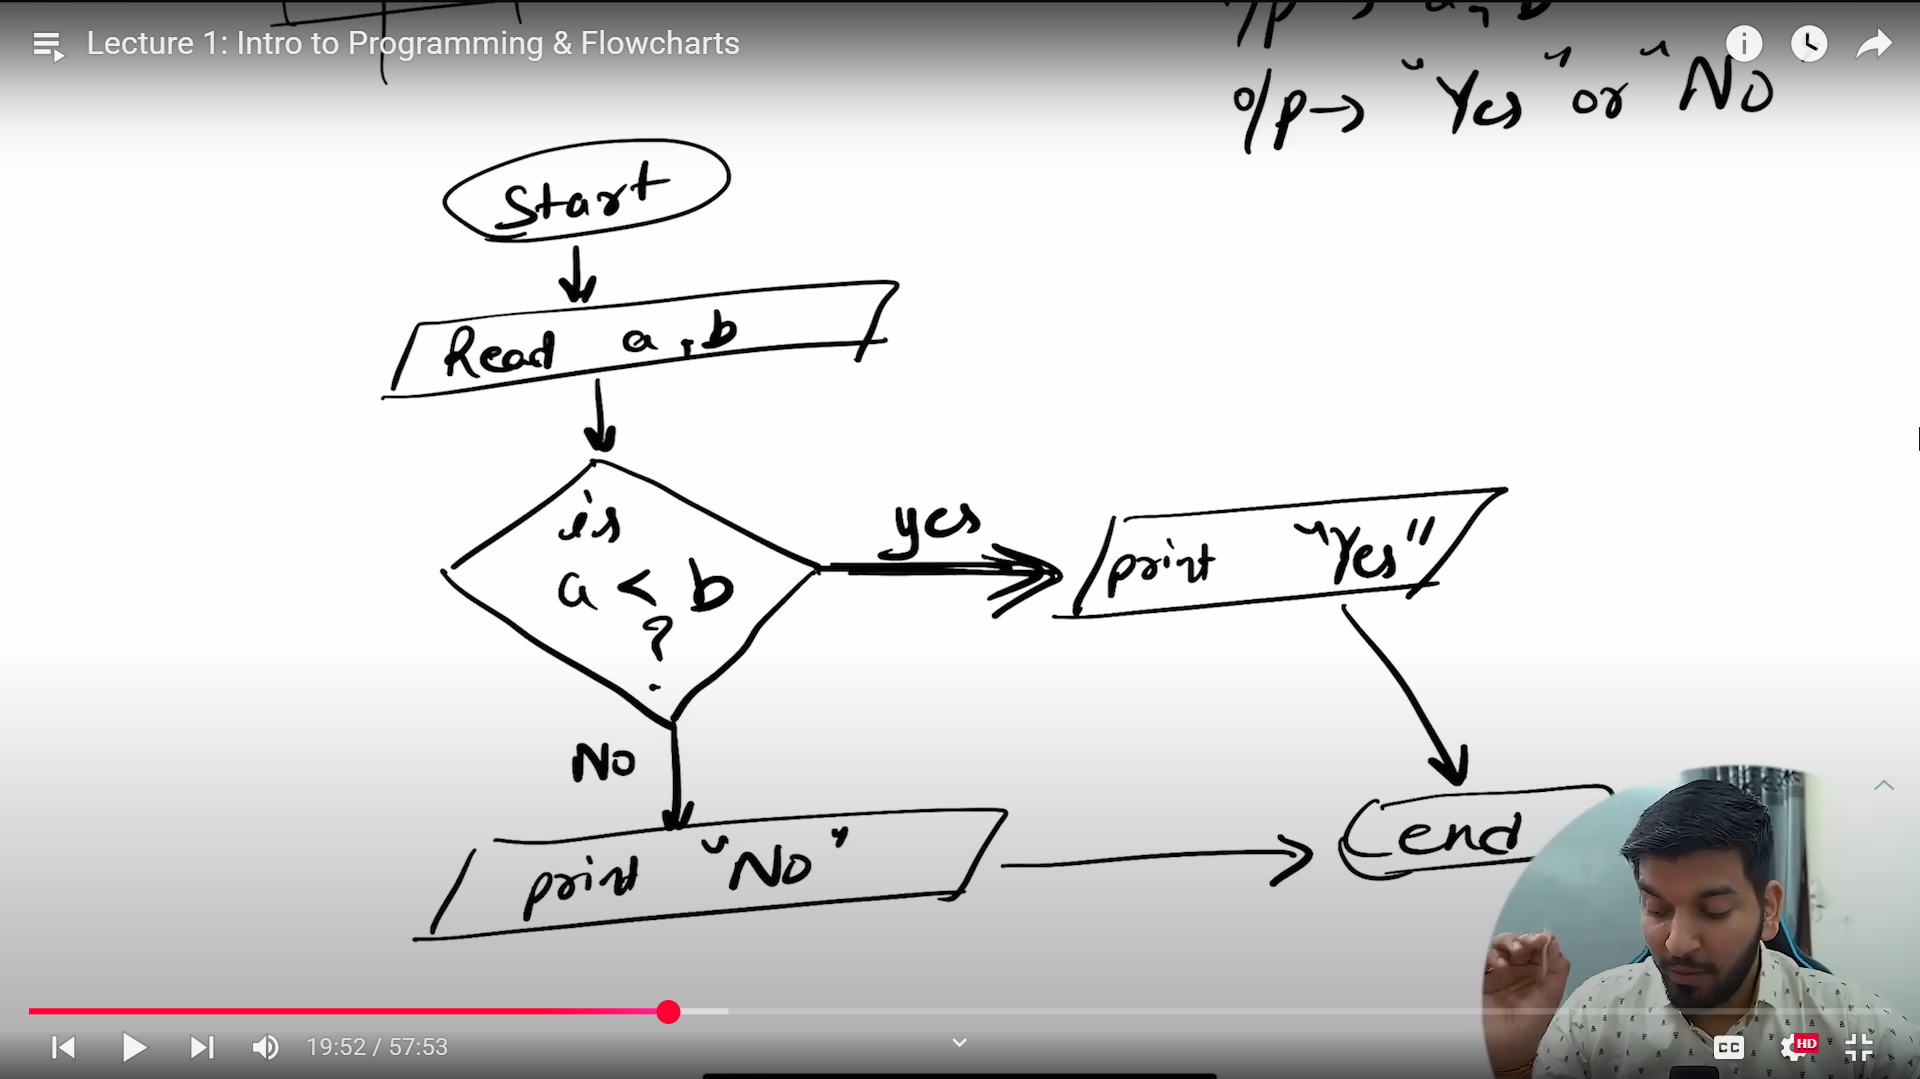 Lecture 1: Intro to Programming & Flowcharts
o/p → "Yes" or "No
Start
Read a, b
is
a < b
?
yes
print "Yes"
No
print "No"
end
19:52 / 57:53
CC
HD